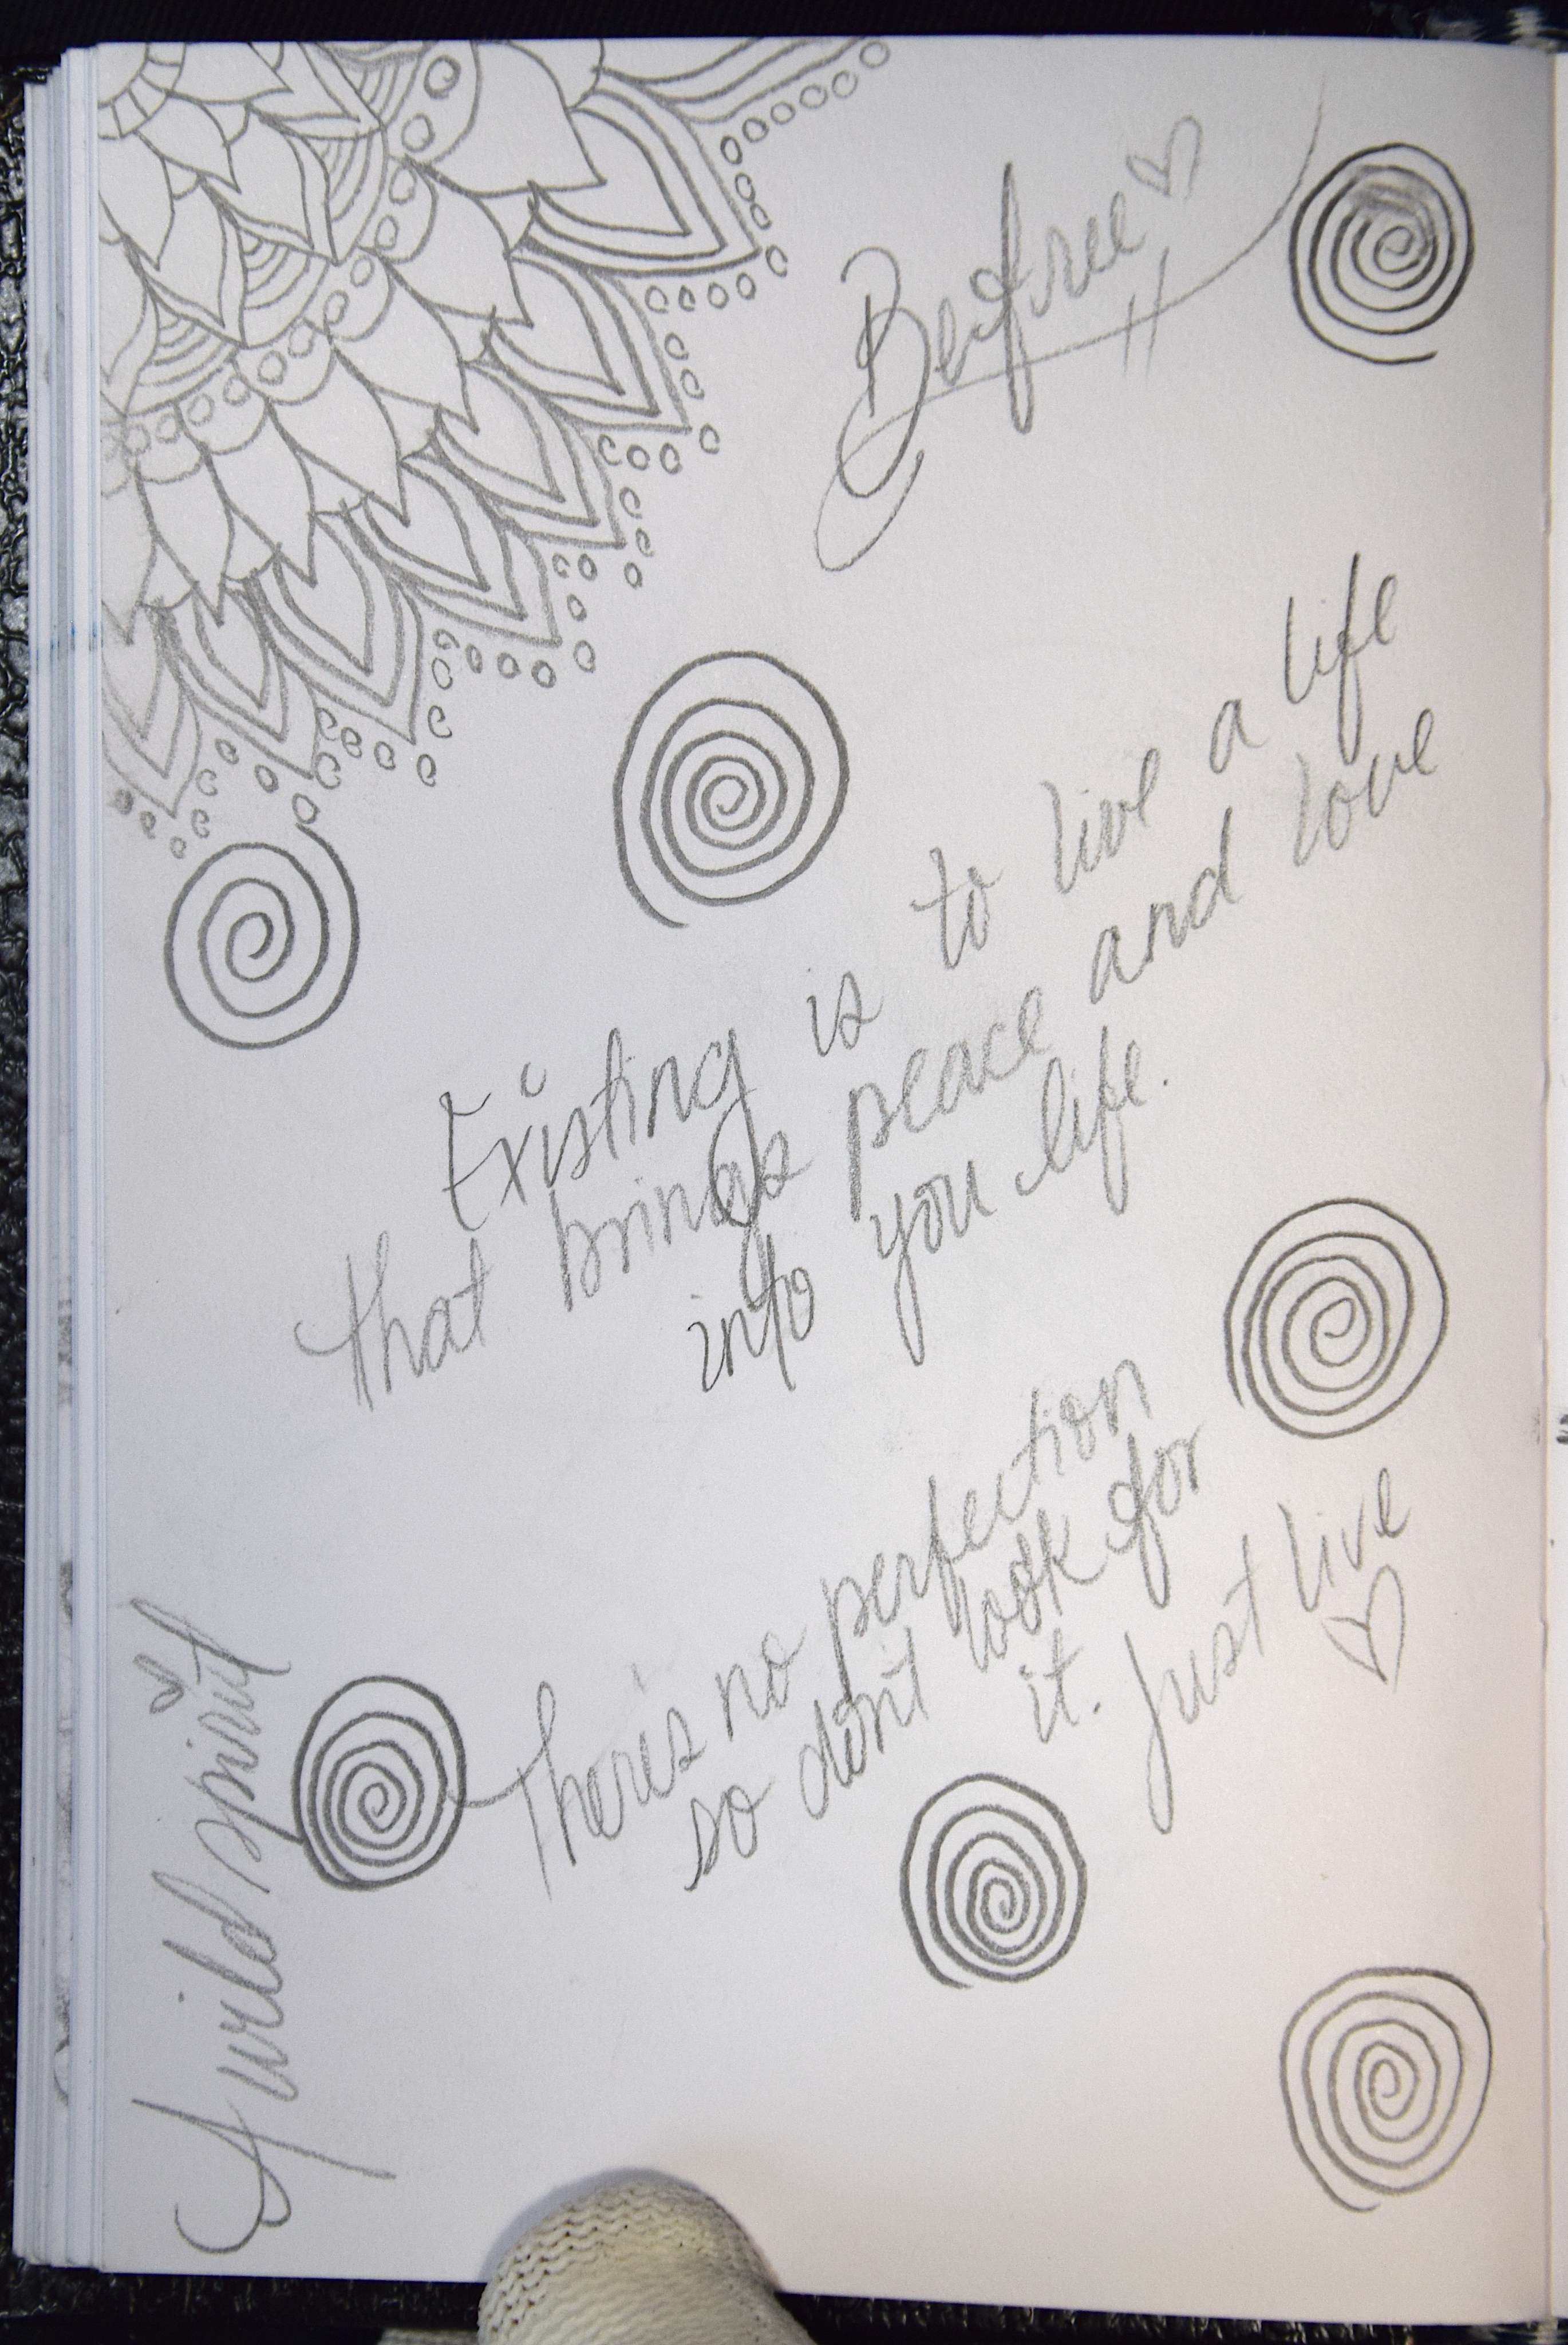 Be free
Existing is to live a life
that brings peace and love
into you life.
There's no perfection
so don't look for
it. Just live
A wild spirit